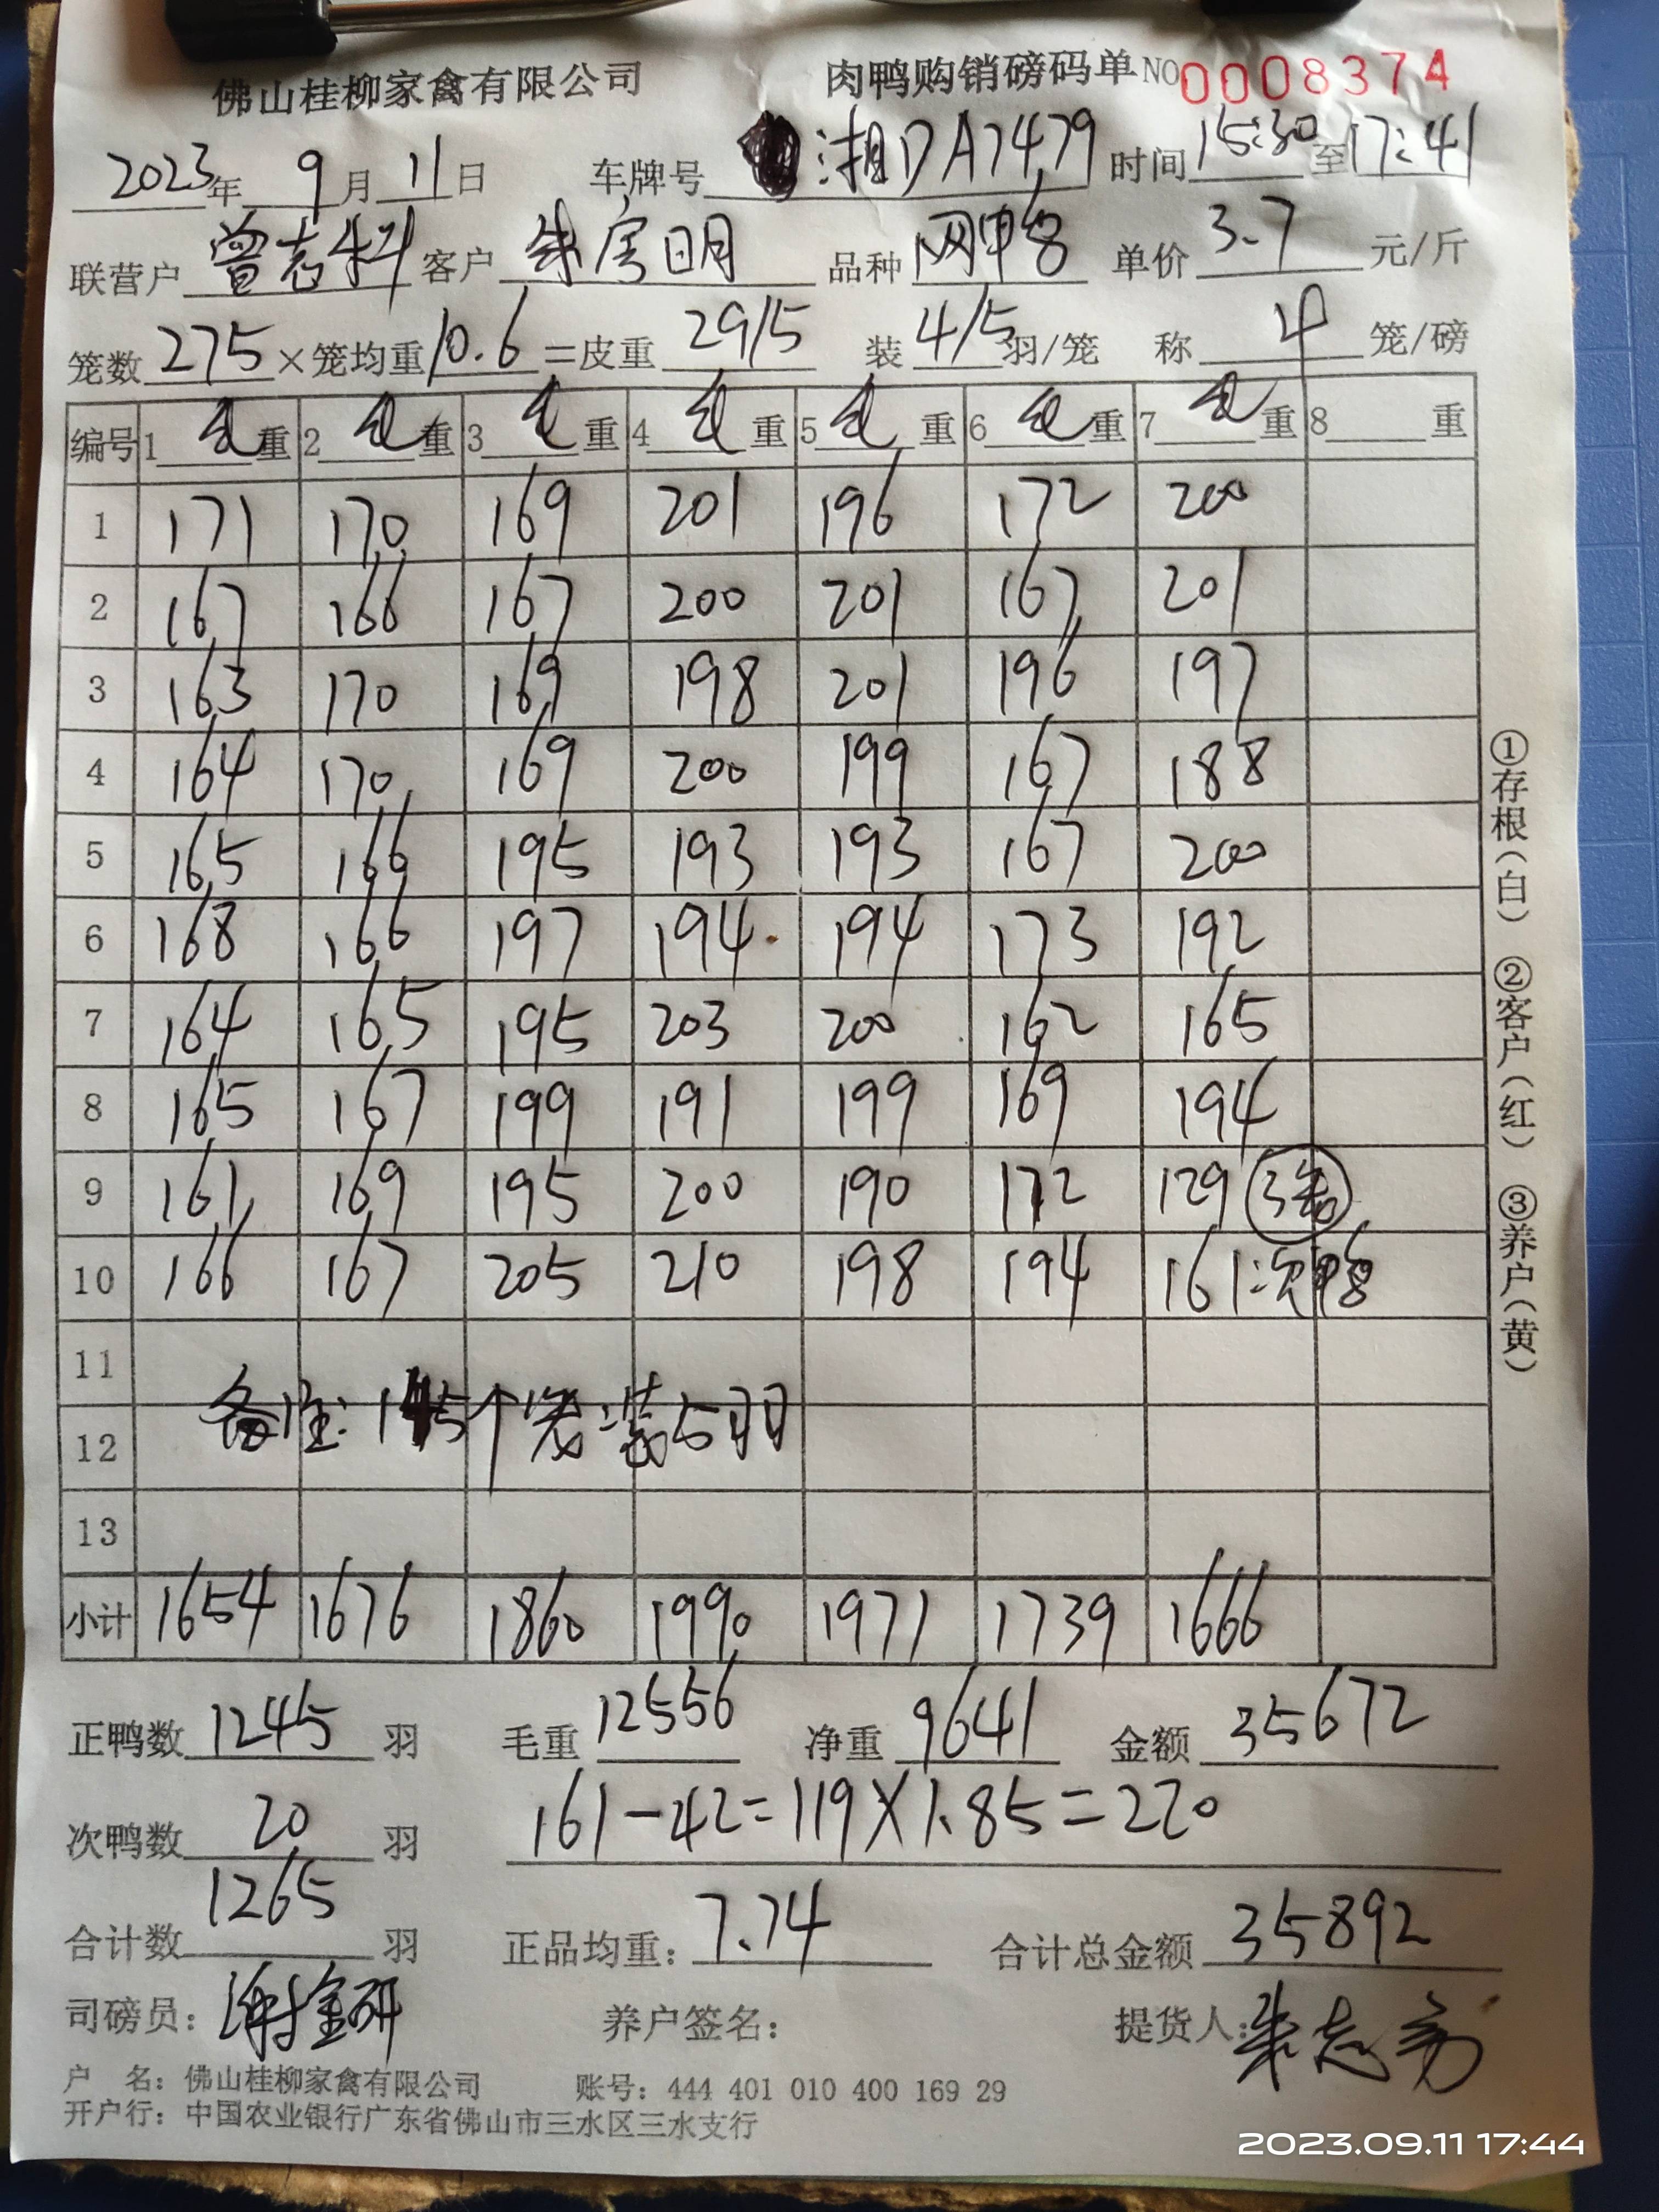 佛山桂柳家禽有限公司 肉鸭购销磅码单 NO 0008374
2023年 9月 11日 车牌号 湘DA7479 时间 15:30 至 17:41
联营户 曾志科 客户 朱房明 品种 网鸭 单价 3.7 元/斤
笼数 275 ×笼均重 10.6 =皮重 2915 装 4/5 羽/笼 称 4 笼/磅
编号 1 毛重 2 毛重 3 毛重 4 毛重 5 毛重 6 毛重 7 毛重 8 重
1 171 170 169 201 196 172 200
2 167 166 167 200 201 167 201
3 163 170 169 198 201 196 197
4 164 170 169 200 199 167 188
5 165 166 195 193 193 167 200
6 168 166 197 194 194 173 192
7 164 165 195 203 200 162 165
8 165 167 199 191 199 169 194
9 161 169 195 200 190 172 129 3笼
10 166 167 205 210 198 194 161:次鸭
11
备注: 145个笼装5羽
12
13
小计 1654 1676 1860 1990 1971 1739 1666
正鸭数 1245 羽 毛重 12556 净重 9641 金额 35672
次鸭数 20 羽 161-42=119×1.85=220
合计数 1265 羽 正品均重: 7.74 合计总金额 35892
司磅员: 谢金研 养户签名: 提货人: 朱志
户 名: 佛山桂柳家禽有限公司 账号: 444 401 010 400 169 29
开户行: 中国农业银行广东省佛山市三水区三水支行
①存根(白) ②客户(红) ③养户(黄)
2023.09.11 17:44